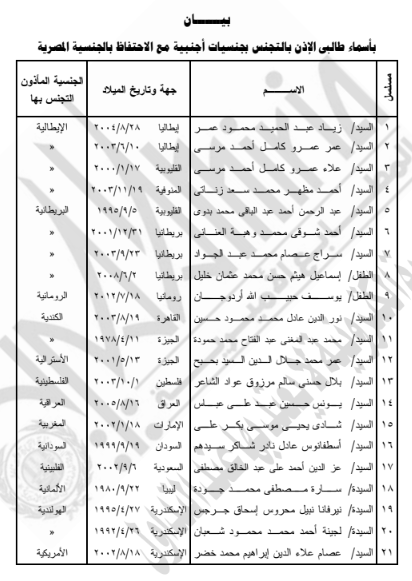 بيـــــــان
بأسماء طالبى الإذن بالتجنس بجنسيات أجنبية مع الاحتفاظ بالجنسية المصرية
مسلسل الاســـــم جهة وتاريخ الميلاد الجنسية المأذون التجنس بها
١ السيد/ زيـاد عبـد الحميـد محمـود عمـر إيطاليا ٢٠٠٤/٨/٢٨ الإيطالية
٢ السيد/ عمر عمرو كامـل أحمـد مرسـى إيطاليا ٢٠٠٣/٦/١٠ «
٣ السيد/ علاء عمرو كامـل أحمـد مرسـى القليوبية ٢٠٠٠/١/١٧ «
٤ السيد/ أحمـد مظهـر محمـد سعد زنـاتى المنوفية ٢٠٠٣/١١/١٩ «
٥ السيد/ عبد الرحمن أحمد عبد الباقى محمد بدوى القليوبية ١٩٩٥/٩/٥ البريطانية
٦ السيد/ أحمد شـوقى محمـد وهبـة العنـانى بريطانيا ٢٠٠١/١٢/٣١ «
٧ السيد/ سـراج عصـام محمـد عبـد الجـواد بريطانيا ٢٠٠٣/٩/٢٣ «
٨ الطفل/ إسماعيل هيثم حسن محمد عثمان خليل بريطانيا ٢٠٠٨/٦/٢ «
٩ الطفل/ يوسـف حبيـب الله أردوجـان رومانيا ٢٠١٢/٧/١٨ الرومانية
١٠ السيد/ نور الدين عادل محمـد محمـود حسـين القاهرة ٢٠٠٣/٨/١٩ الكندية
١١ السيد/ محمد عبد المغنى عبد الفتاح محمد حمودة الجيزة ١٩٧٨/٤/١١ «
١٢ السيد/ عمر محمد جـلال الـدين السـيد بحبح الجيزة ٢٠٠١/٥/١٣ الأسترالية
١٣ السيد/ بلال حسنى سالم مرزوق عواد الشاعر فلسطين ٢٠٠٣/١٠/١ الفلسطينية
١٤ السيد/ يـونس حسـين عبـد علـى عبـاس العراق ٢٠٠٥/٨/١٦ العراقية
١٥ السيد/ شـادى يحيـى موسـى بكـر علـى الإمارات ٢٠٠٢/١/١٨ المغربية
١٦ السيد/ أسطفانوس عادل نادر شـاكر سـيدهم السودان ١٩٩٩/٩/١٩ السودانية
١٧ السيد/ عز الدين أحمد على عبد الخالق مصطفى السعودية ٢٠٠٢/٩/٦ الفلبينية
١٨ السيدة/ سـارة مـصطفى محمـد جـودة ليبيا ١٩٨٠/٩/٢٢ الألمانية
١٩ السيدة/ نيرفانا نبيل محروس إسحاق جـرجس الإسكندرية ١٩٩٥/٤/٢٧ الهولندية
٢٠ السيدة/ لجينة أحمد محمـد محمـود شـعبان الإسكندرية ١٩٩٢/٤/٢٦ «
٢١ السيد/ عصام علاء الدين إبراهيم محمد خضر الإسكندرية ٢٠٠٢/٨/١٨ الأمريكية